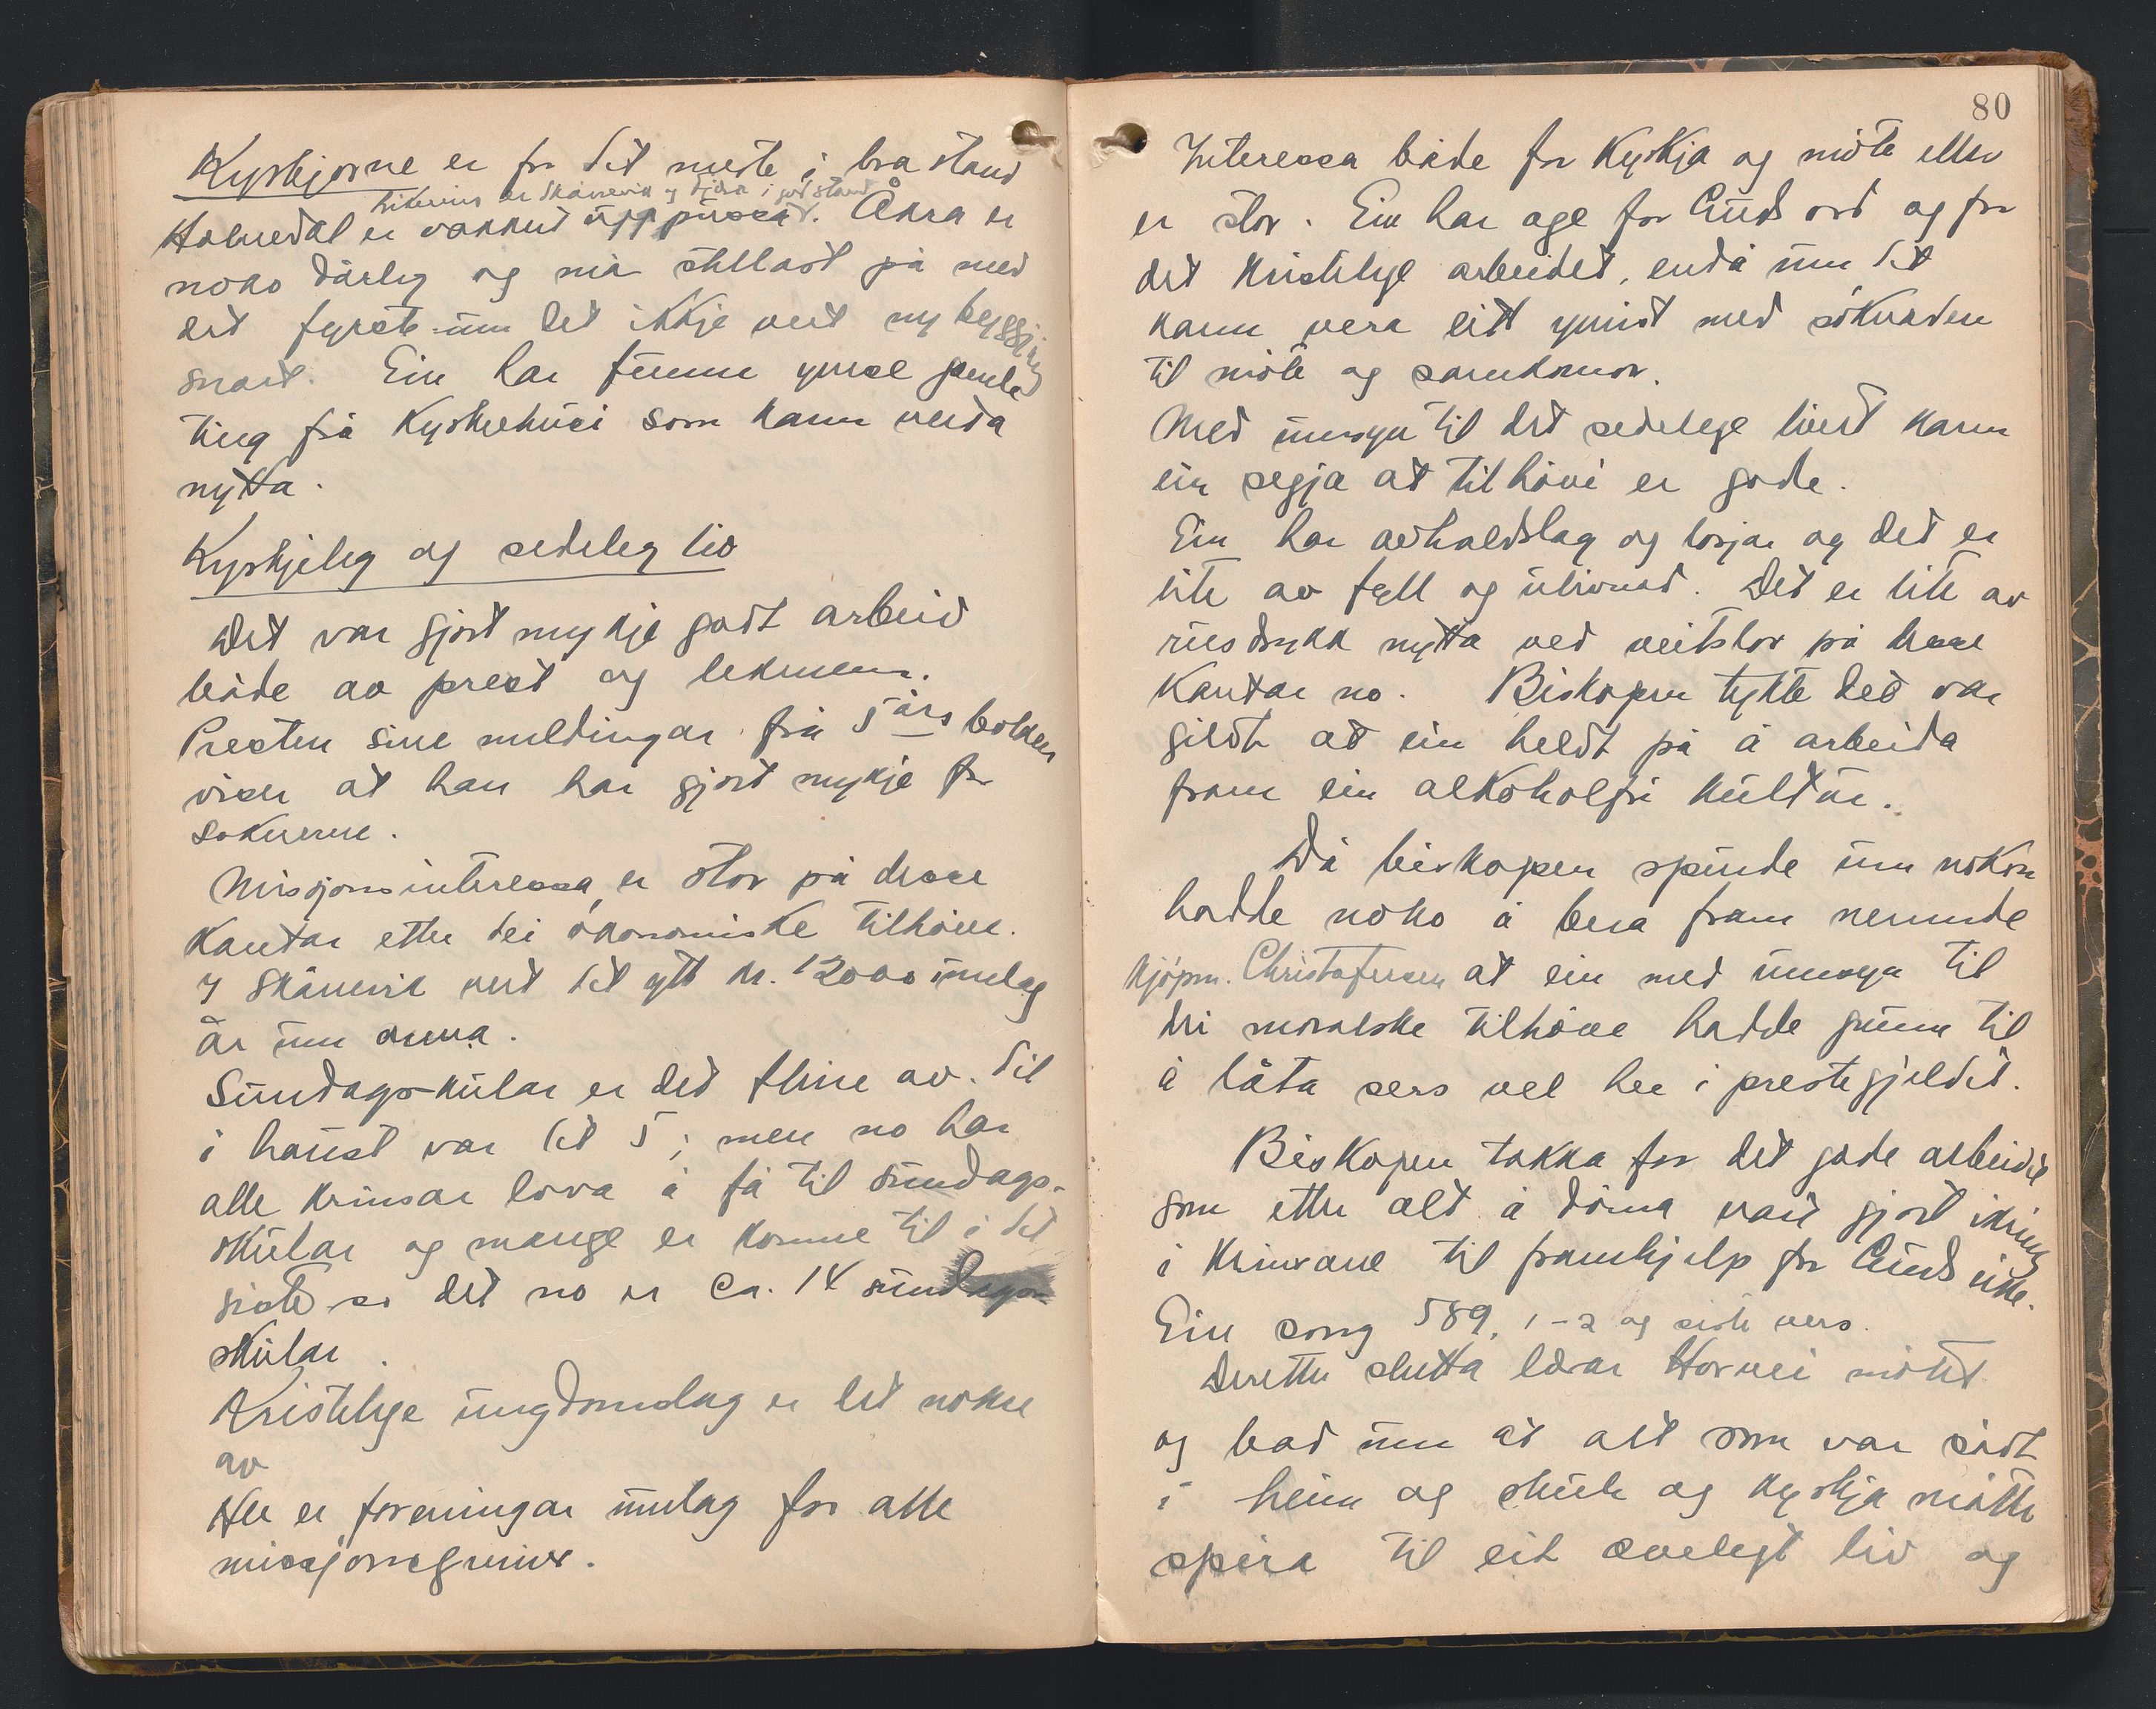 Kyrkjorne er for det meste i bra stand
Liksins er Skånevik og Fjæra i god stand
Holmedal er vakkert uppussa. Åkra er
noko dårleg og må stellast på med
det fyrste um det ikkje vert ny bygging
snart. Ein har funne ymse gamle
ting frå Kyrkjehusi som kann verda
nytta.
Kyrkjeleg og sedeleg liv
Det var gjort mykje godt arbeid
både av prest og lekmenn.
Presten sine meldingar frå 5 års bolken
viser at han har gjort mykje for
soknerne.
Misjonsinteressa er stor på desse
Kantar etter dei økonomiske tilhøve.
I Skånevik vert det ytt kr. 12000 umlag
år um anna.
Sundagsskular er det fleire av. Til
i haust var det 5; men no har
alle krinsar lova å få til sundags-
skular og mange er komne til i det
siste so det no er ca. 14 sundags
skular.
Kristelege ungdomslag er det nokre
av
Her er foreningar umlag for alle
missjonsgreiner.
80
Interessa både for Kyrkja og møte elles
er stor. Ein har age for Guds ord og for
det kristelege arbeidet, endå um det
kann vera litt ymist med søknaden
til møte og samkomor.
Med umsyn til det sedelege livet kann
ein segja at tilhøvi er gode.
Ein har avhaldslag og losjar og det er
lite av fyll og ulivnad. Det er lite av
rusdrykk nytta ved veitslor på desse
Kantar no. Biskopen tykte det var
gildt at ein heldt på å arbeida
fram ein alkoholfri kultur.
Då biskopen spurde um nokon
hadde noko å bera fram nemnde
kjøpm. Christofersen at ein med umsyn til
dei moralske tilhøve hadde grunn til
å låta sers vel her i prestegjeldet.
Biskopen takka for det gode arbeidet
som etter alt å døma vart gjort ikring
i Krinsane til framhjelp for Guds rike.
Ein song 589, 1-2 og siste vers.
Deretter slutta lærar Hornei møtet
og bad um at alt som var sådt
i heim og skule og kyrkja måtte
spira til eit ævelegt liv og